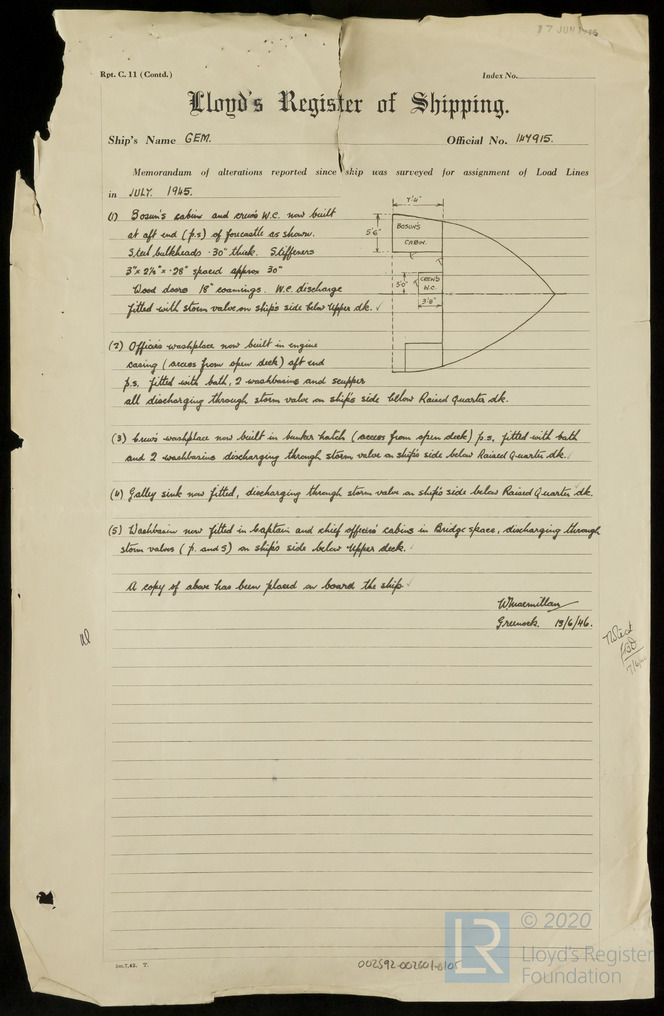 17 JUN 1946
Rpt. C. 11 (Contd.)
Index No.
Lloyd's Register of Shipping.
Ship's Name GEM.
Official No. 147915.
Memorandum of alterations reported since ship was surveyed for assignment of Load Lines
in JULY. 1945.
(1) Bosun's cabin and crew's W.C. now built
at aft end (p.s) of forecastle as shown.
Steel bulkheads ·30" thick. Stiffeners
3" x 2½" x ·28" spaced approx 30"
Wood doors 18" coamings. W.C. discharge
fitted with storm valve on ship's side below Upper dk.
7'4"
5'6"
BOSUN'S
CABIN.
5'0"
CREW'S
W.C.
3'8"
(2) Officers washplace now built in engine
casing (access from open deck) aft end
p.s. fitted with bath, 2 washbasins and scupper
all discharging through storm valve on ship's side below Raised Quarter dk.
(3) Crew's washplace now built in bunker hatch (access from open deck) p.s. fitted with bath
and 2 washbasins discharging through storm valve on ship's side below Raised Quarter dk.
(4) Galley sink now fitted, discharging through storm valve on ship's side below Raised Quarter dk.
(5) Washbasin now fitted in Captain and chief officers' cabins in Bridge space, discharging through
storm valves (p. and S) on ship's side below Upper deck.
A copy of above has been placed on board the ship
W Macmillan
Greenock. 13/6/46.
002592-002601-0105
© 2020
LR
Lloyd's Register
Foundation